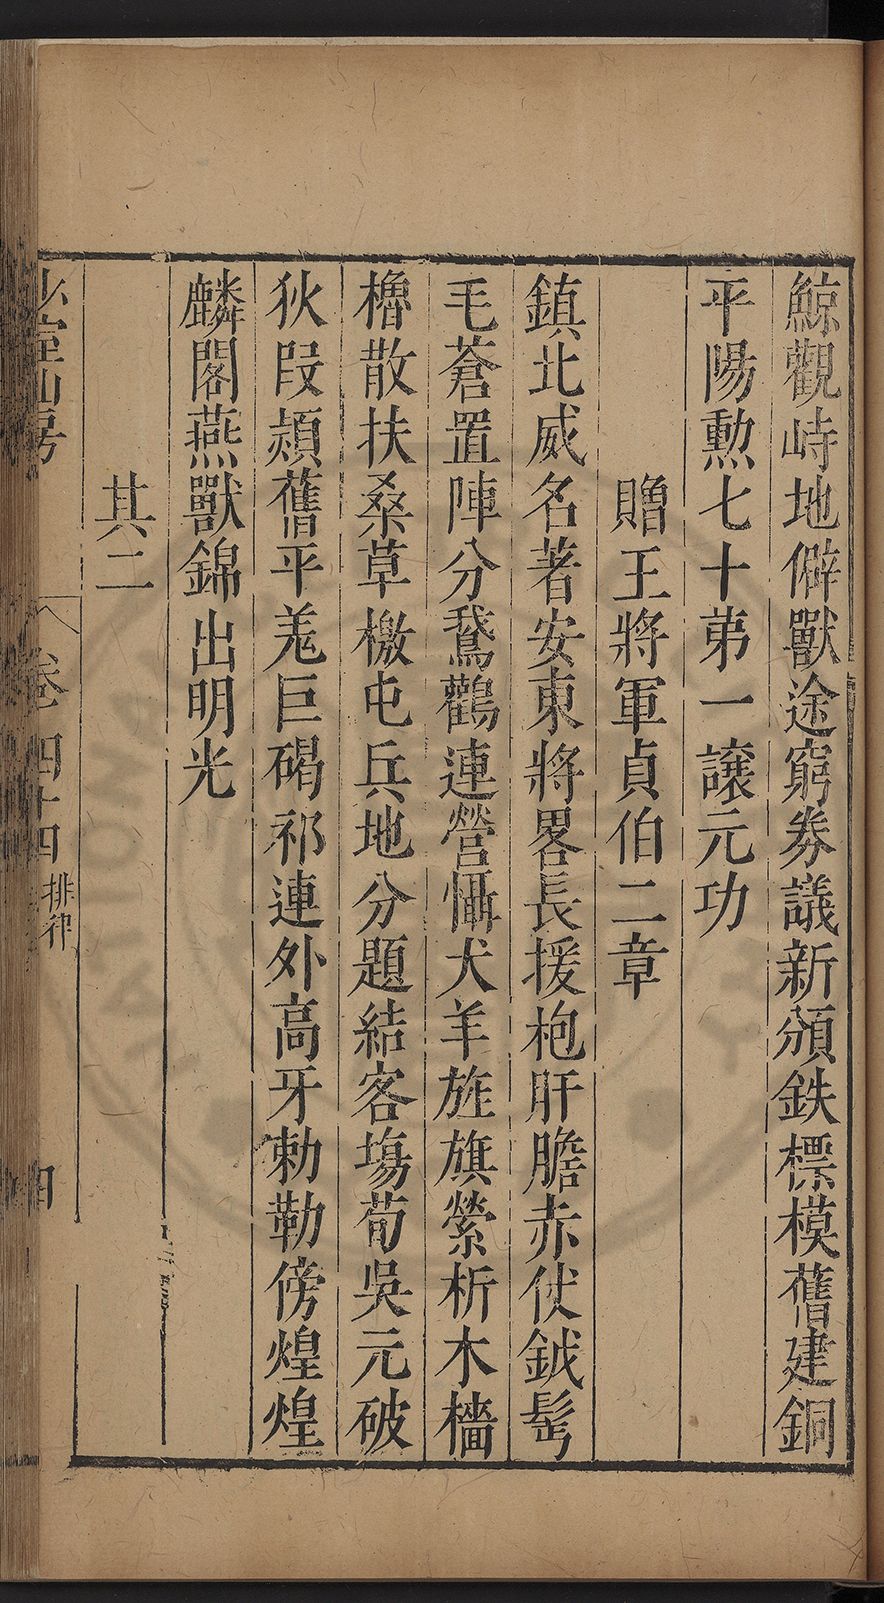 鯨觀峙地僻獸途窮券議新頒鉄標模舊建銅
平陽勲七十苐一讓元功
贈王將軍貞伯二章
鎮北威名著安東將畧長援枹肝膽赤伏鉞髩
毛蒼置陣分鵞鸛連營懾犬羊旌旗縈析木檣
櫓散扶桑草檄屯兵地分題結客塲荀吳元破
狄段熲舊平羗巨碣祁連外高牙勅勒傍煌煌
麟閣燕獸錦出明光
其二
少室山房
卷四十四
排律
四